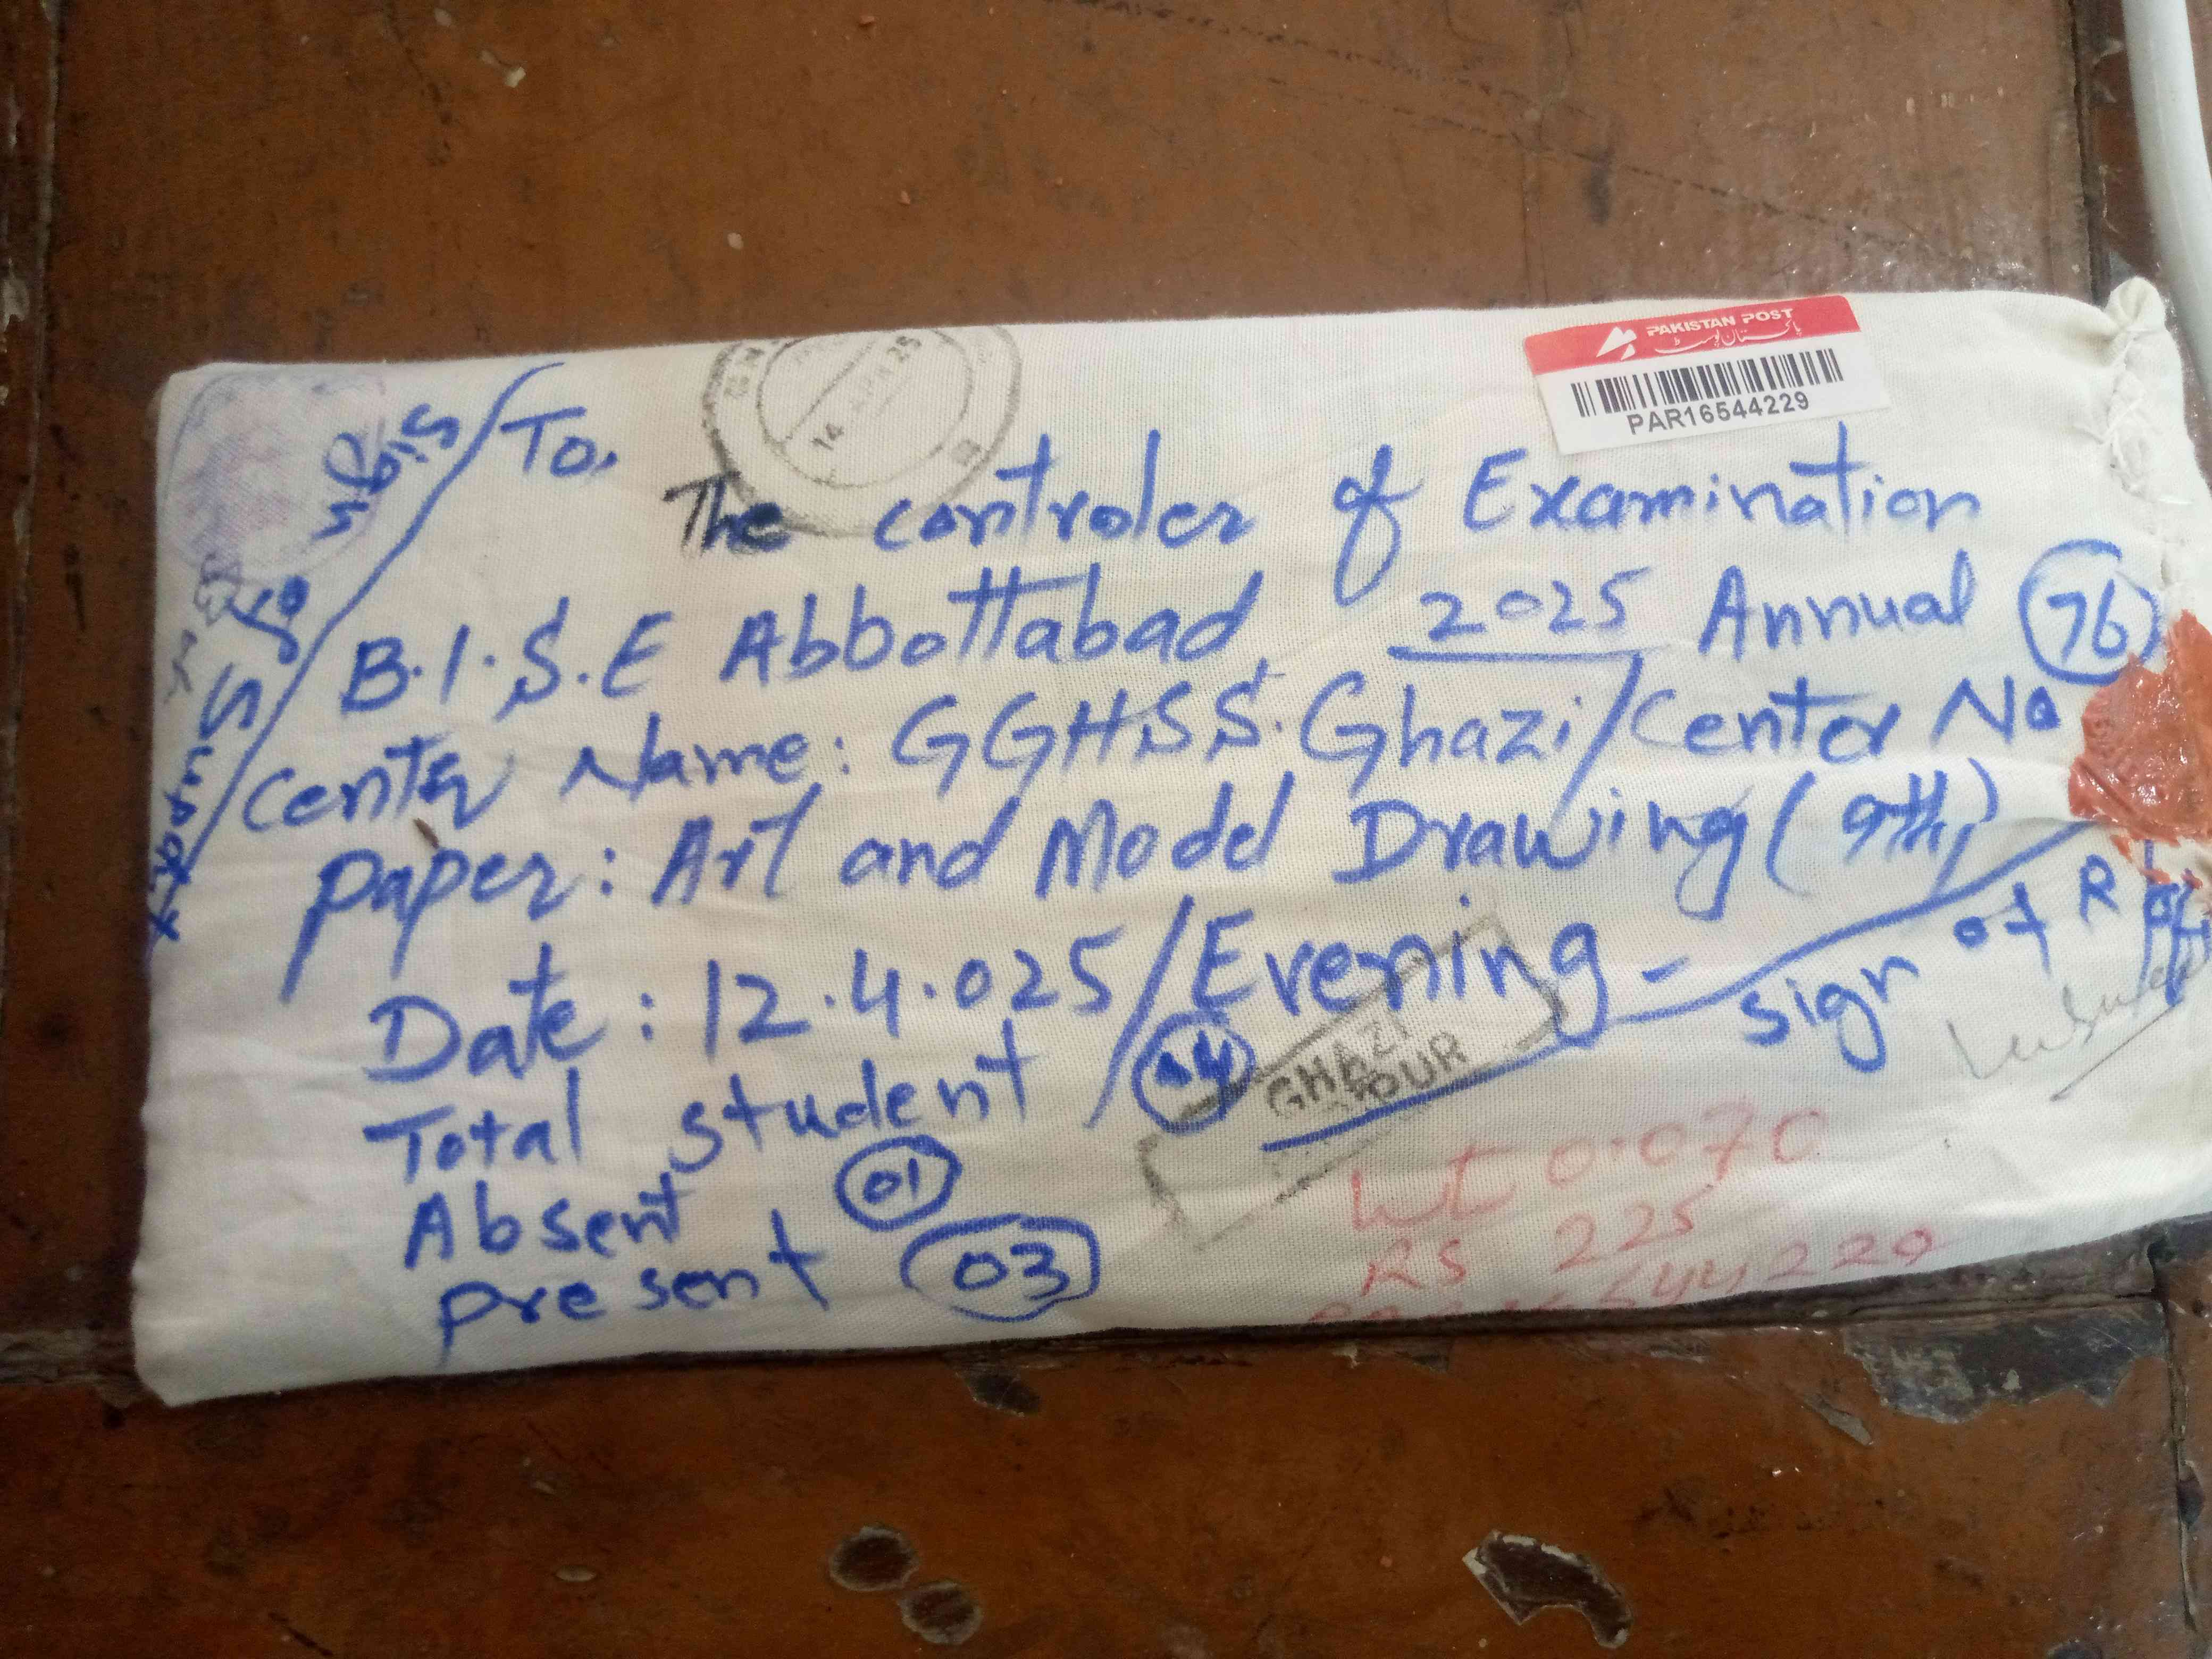 PAKISTAN POST
پاکستان پوسٹ
PAR16544229
14 APR 25
To,
The controler of Examination
B.I.S.E Abbottabad 2025 Annual
Center Name: GGHSS.Ghazi/Center No 76
Paper: Art and Model Drawing (9th)
Date: 12.4.025/Evening-
Total student 04
Absent 01
Present 03
Sign of Supdt
Sign of R
GHAZI
Wt 0.070
RS 225